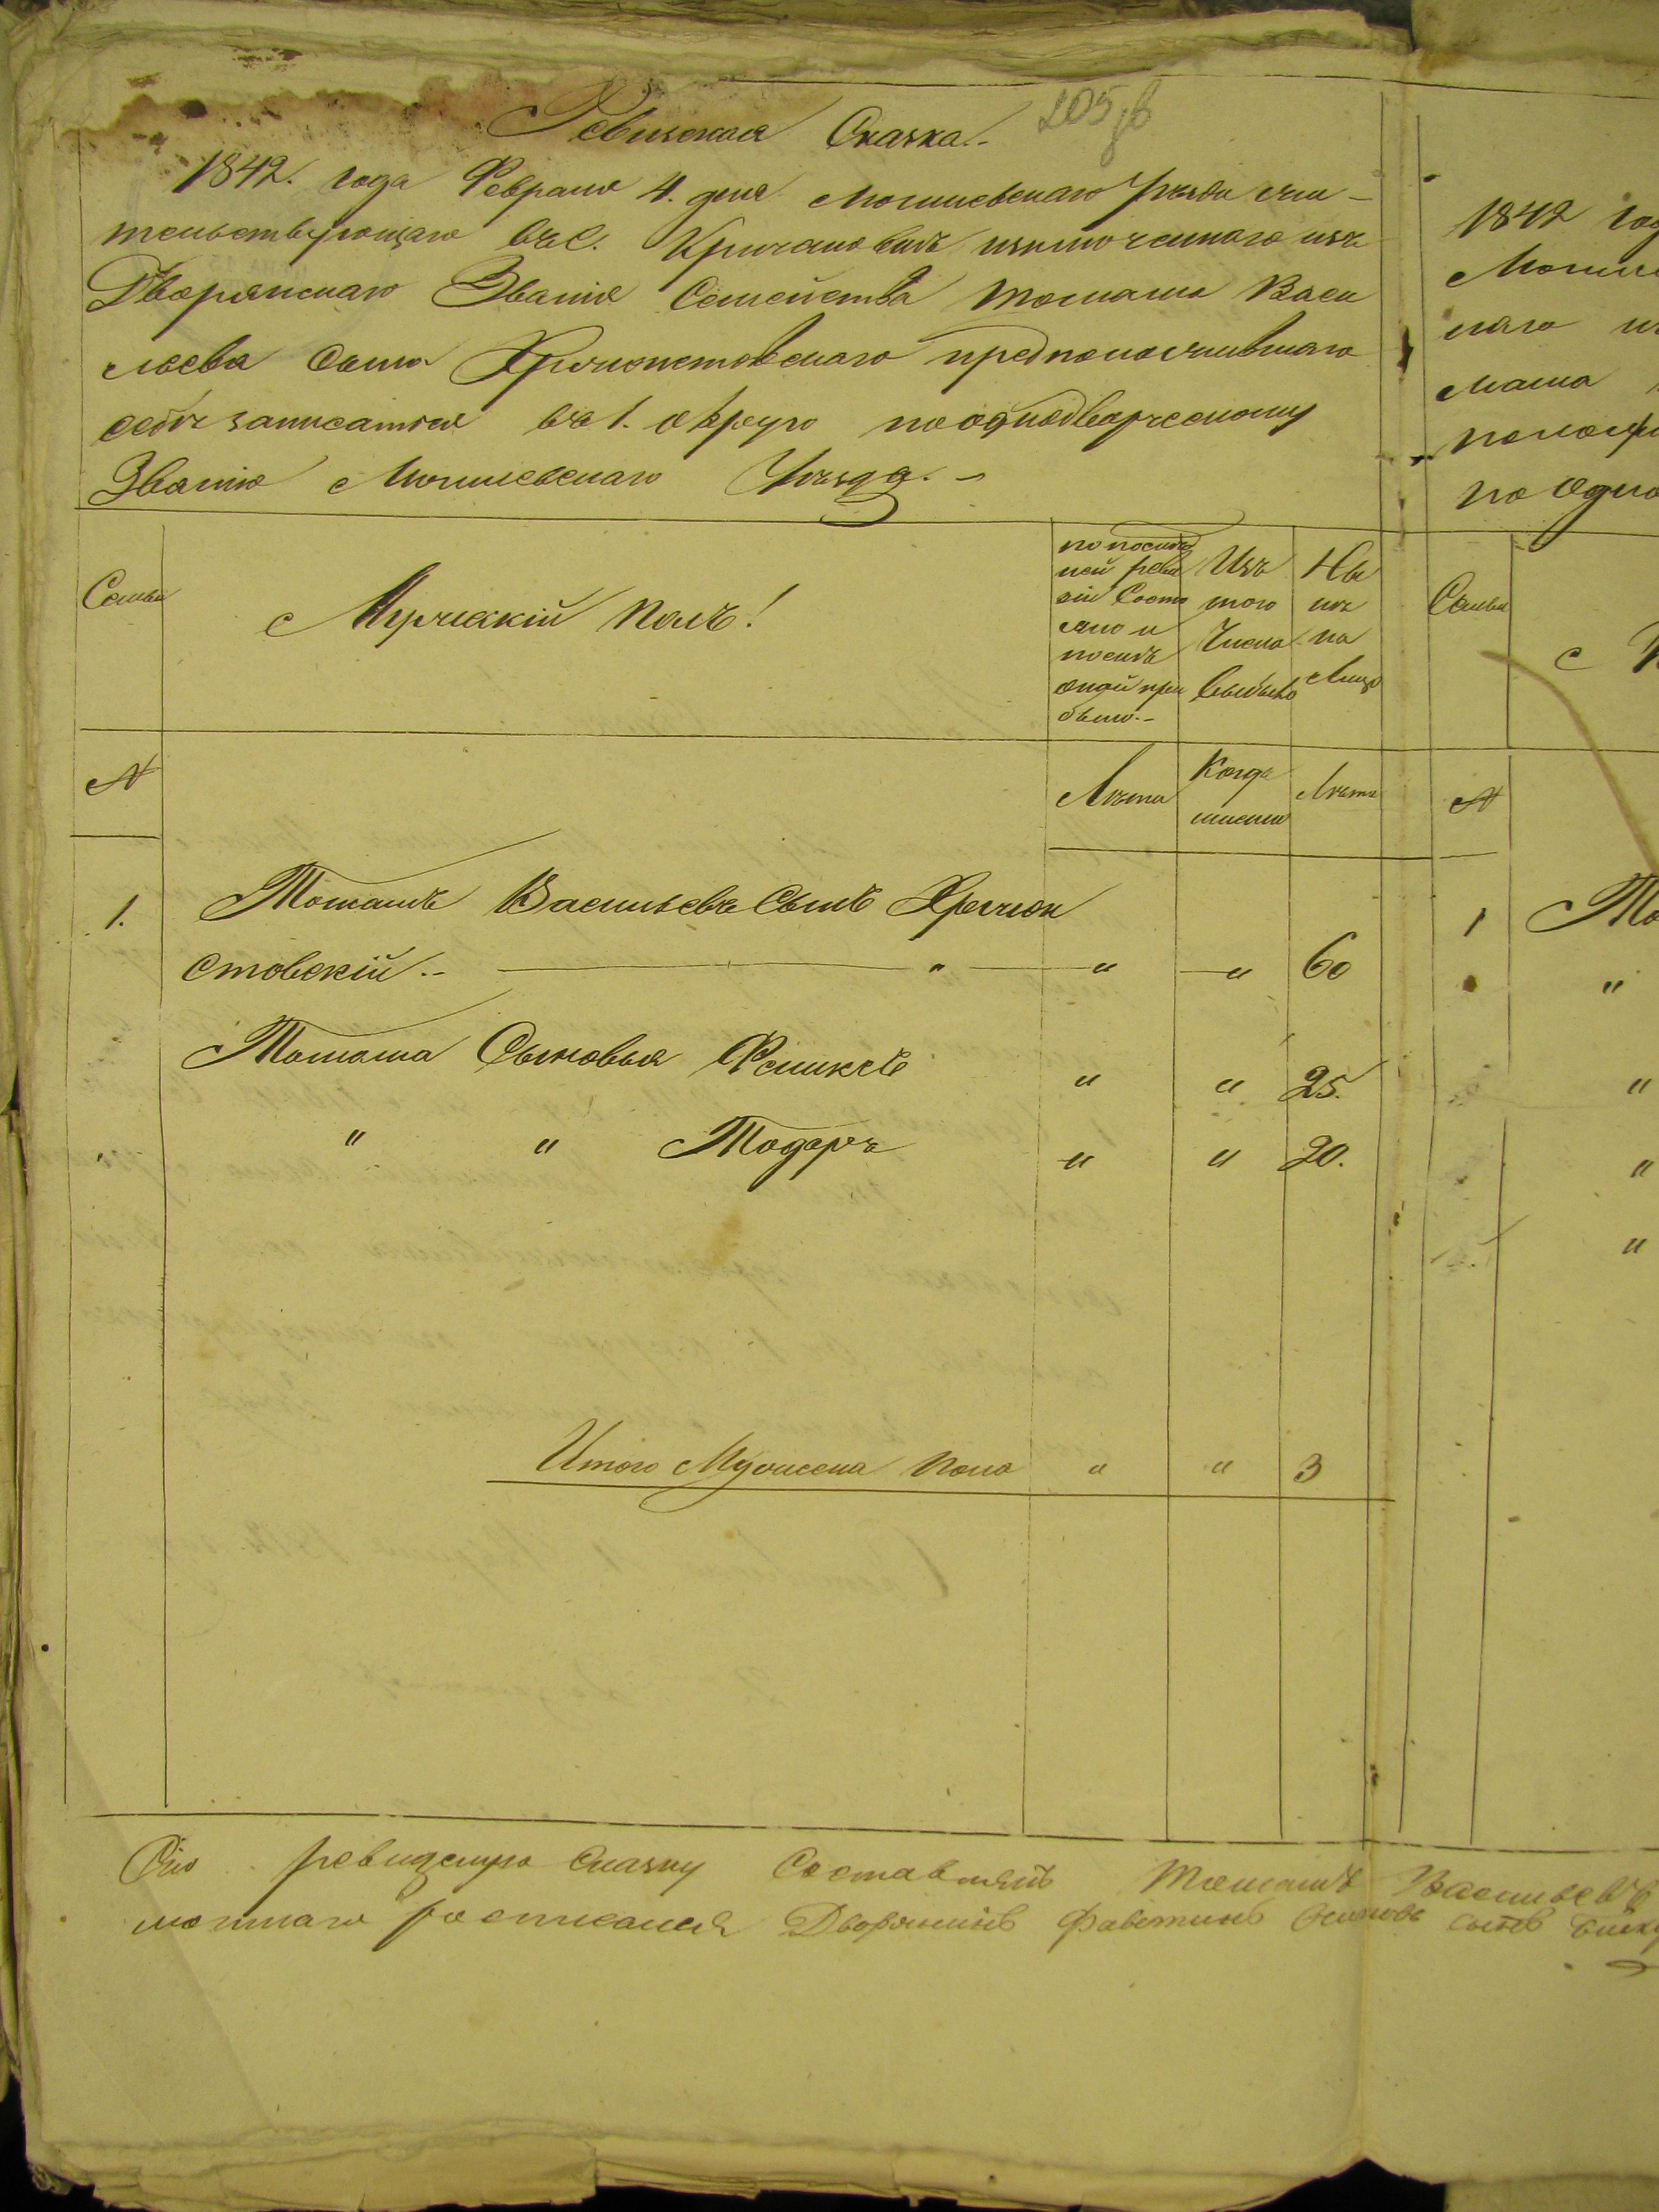 Ревизская Сказка.
205 об
1842. года Февраля 4. дня Могилевскаго Уезда жи-
тельствующаго въ с. Кричановкѣ изключеннаго изъ
Дворянскаго Званія Семейства Томаша Васи
льева Сына Хрычонстовскаго предположившаго
себѣ записатся въ 1. округо по однодворческому
Званію Могилевскаго Уѣзда. –
Семьи
Мужескій полъ!
по послѣд
ней реви
зіи Состо
яло и
послѣ
оной при
было. –
Изъ
того
Числа
выбыло
Ны
нѣ
на
Лицо
№
Лѣта
Когда
имянно
Лѣта
1. Томашъ Васильевъ Сынъ Хрычон
стовскій. – " " " 60
Томаша Сыновья Феликсъ " " 25.
" " " Тодоръ " " 20.
Итого Мужеска пола " " 3
Сію ревизскую Сказку Составлялъ Томашъ Васильевъ
Дворянинъ сынъ
1842 год
Могиле
наго из
маша
полож
по одно
Семьи
№
1 То
"
"
"
"